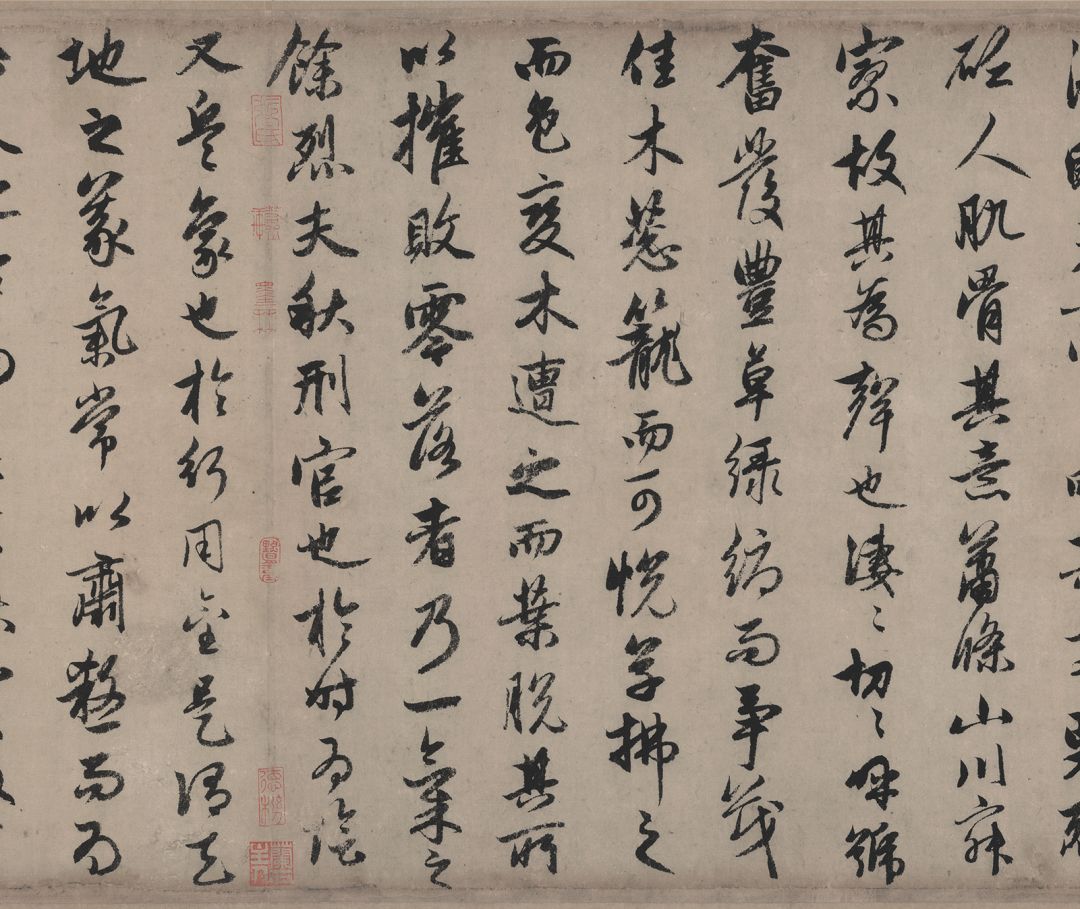 砭人肌骨其意蕭條山川寂
寥故其為聲也淒〻切〻呼號
奮發豐草綠縟而爭茂
佳木蔥籠而可悅草拂之
而色變木遭之而葉脫其所
以摧敗零落者乃一氣之
餘烈夫秋刑官也於時為陰
又兵象也於行用金是謂天
地之義氣常以肅殺而為